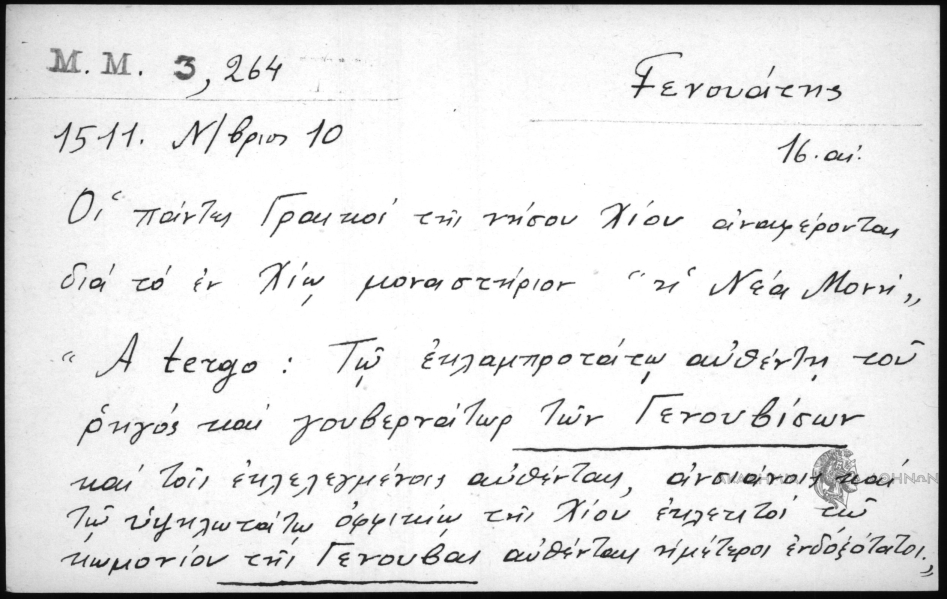 Μ. Μ. 3, 264
Γενουάτης
1511. Ν/βριος 10
16. αἰ.
Οἱ πάντες Γραικοί τῆς νήσου Χίου ἀναφέρονται
διά τό ἐν Χίῳ μοναστήριον "ἡ Νέα Μονή"
"A tergo : Τῷ ἐκλαμπροτάτῳ αὐθέντῃ τοῦ
ῥηγός καί γουβερνάτωρ τῶν Γενουβίσων
καί τοῖς ἐκλελεγμένοις αὐθένταις, ἀνσιάνοις καί
τῷ ὑψηλωτάτῳ ὀφφικίῳ τῆς Χίου ἐκλεκτοί τῶ
κωμονίου τῆς Γενουβας αὐθένταις ἡμέτεροι ἐνδοξότατοι."